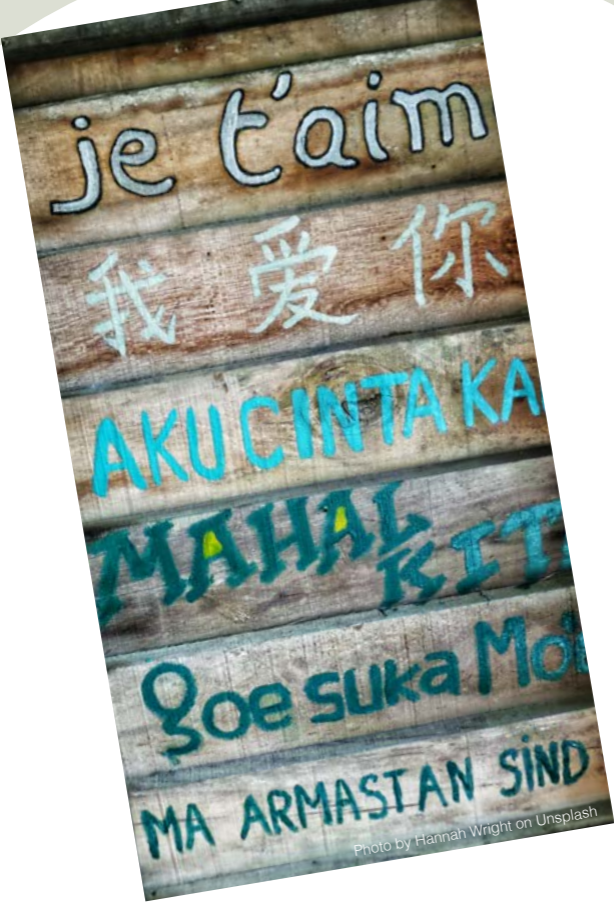 je t'aim
我爱你
AKU CINTA KA
MAHAL
KIT
goe suka Mo
MA ARMASTAN SIND
Photo by Hannah Wright on Unsplash